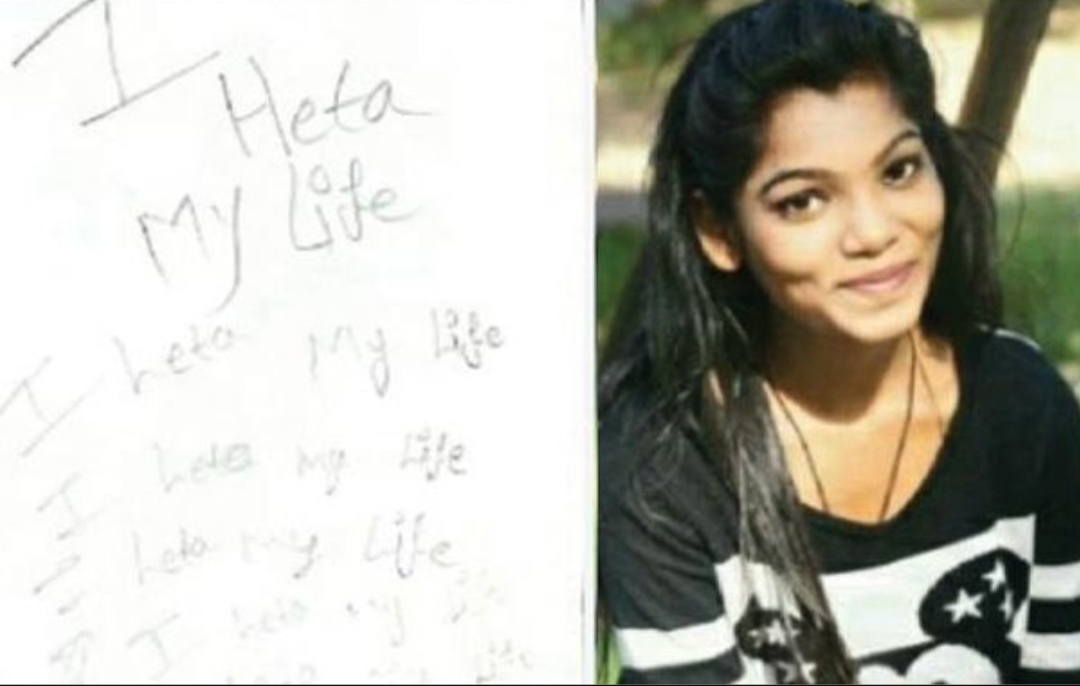 I
Heta
My Life
I heta My Life
I heta my Life
I heta my Life
I heta my
my Life